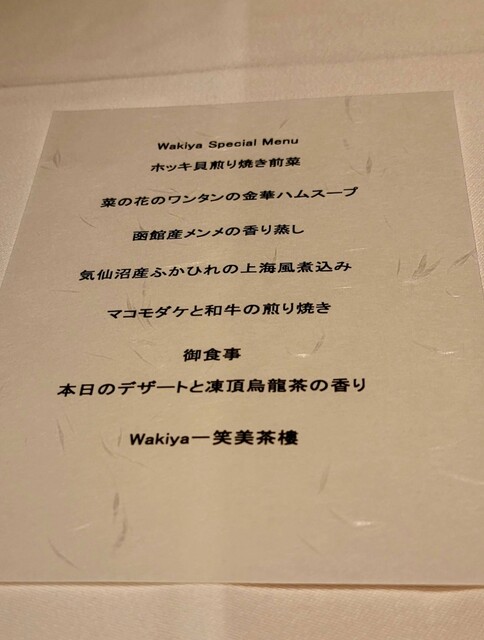 Wakiya Special Menu
ホッキ貝煎り焼き前菜
菜の花のワンタンの金華ハムスープ
函館産メンメの香り蒸し
気仙沼産ふかひれの上海風煮込み
マコモダケと和牛の煎り焼き
御食事
本日のデザートと凍頂烏龍茶の香り
Wakiya一笑美茶樓